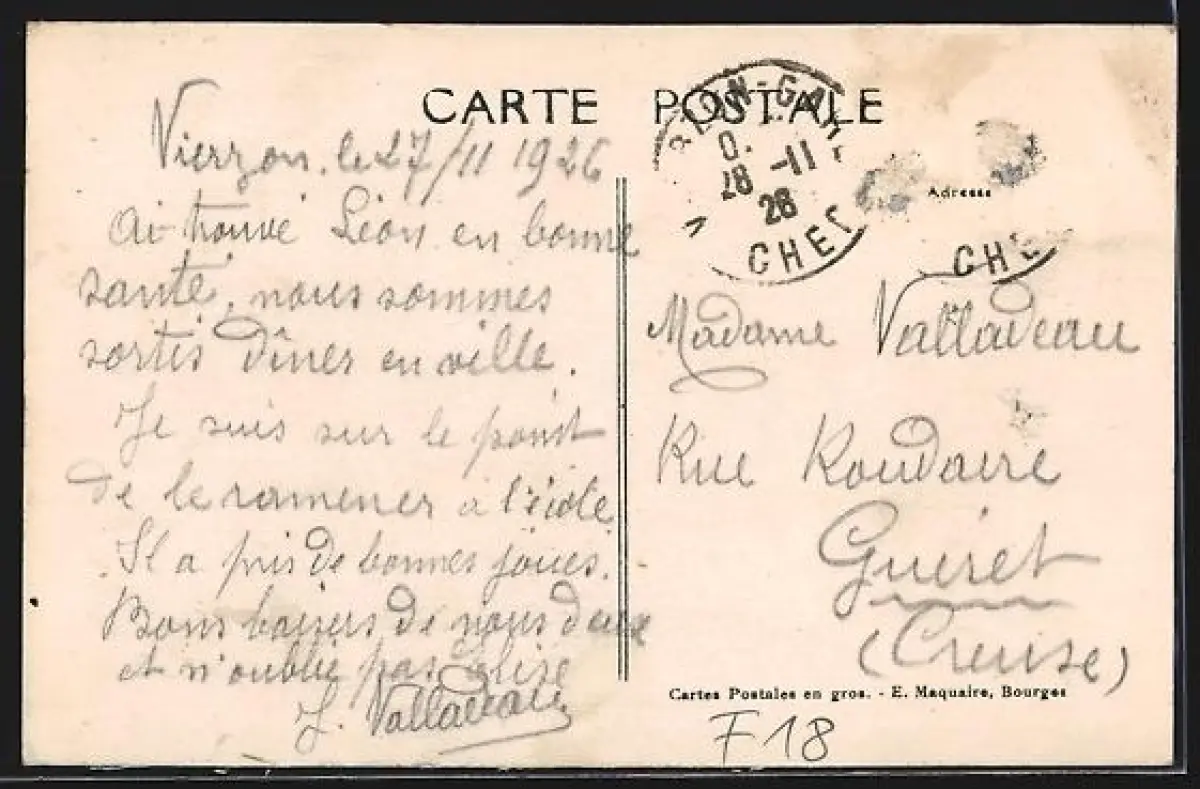 CARTE POSTALE
Vierzon, le 27/11 1926
Ai trouvé Léon en bonne
santé, nous sommes
sortis dîner en ville.
Je suis sur le point
de le ramener à l'école
Il a pris de bonnes joues.
Bons baisers de nous deux
et n'oublie pas Elise
J. Valladeau
28 -11
26
CHER
Adresse
CHE
Madame Valladeau
Rue Roudaire
Guéret
(Creuse)
Cartes Postales en gros. - E. Maquaire, Bourges
F18